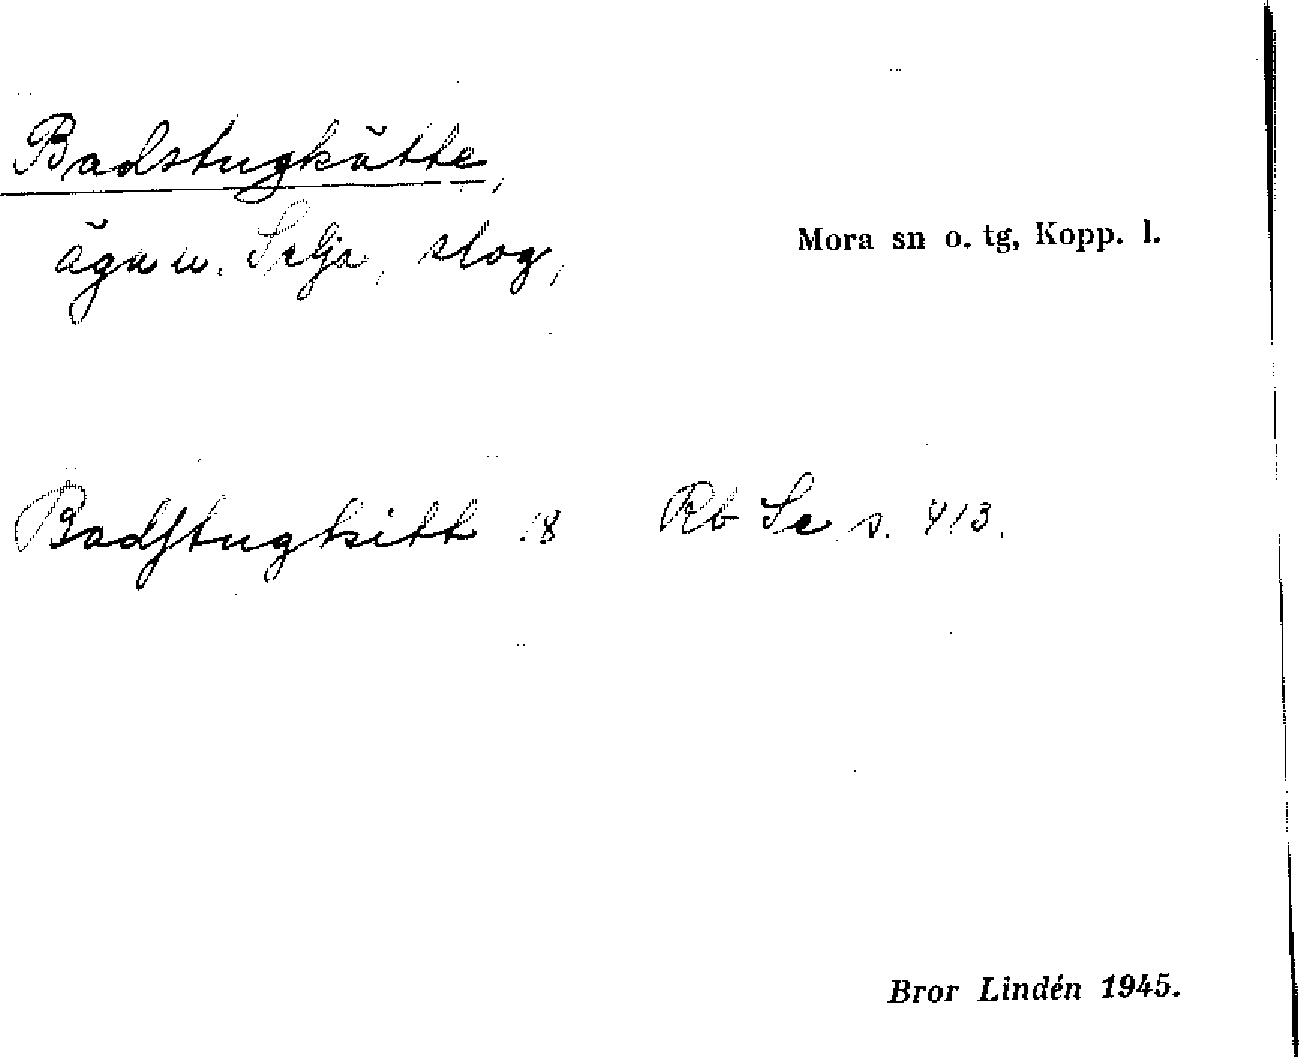 Badstugkätte,
ägn u. Selja, slog,
Mora sn o. tg, Kopp. l.
Badstugkitt 18 Rb Se s. 413.
Bror Lindén 1945.